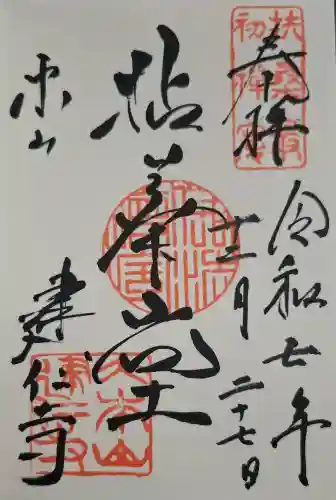 扶桑最
初禅窟
奉拝
令和七年
十二月二十七日
拈華堂
東山
建仁寺
大本山
建仁寺